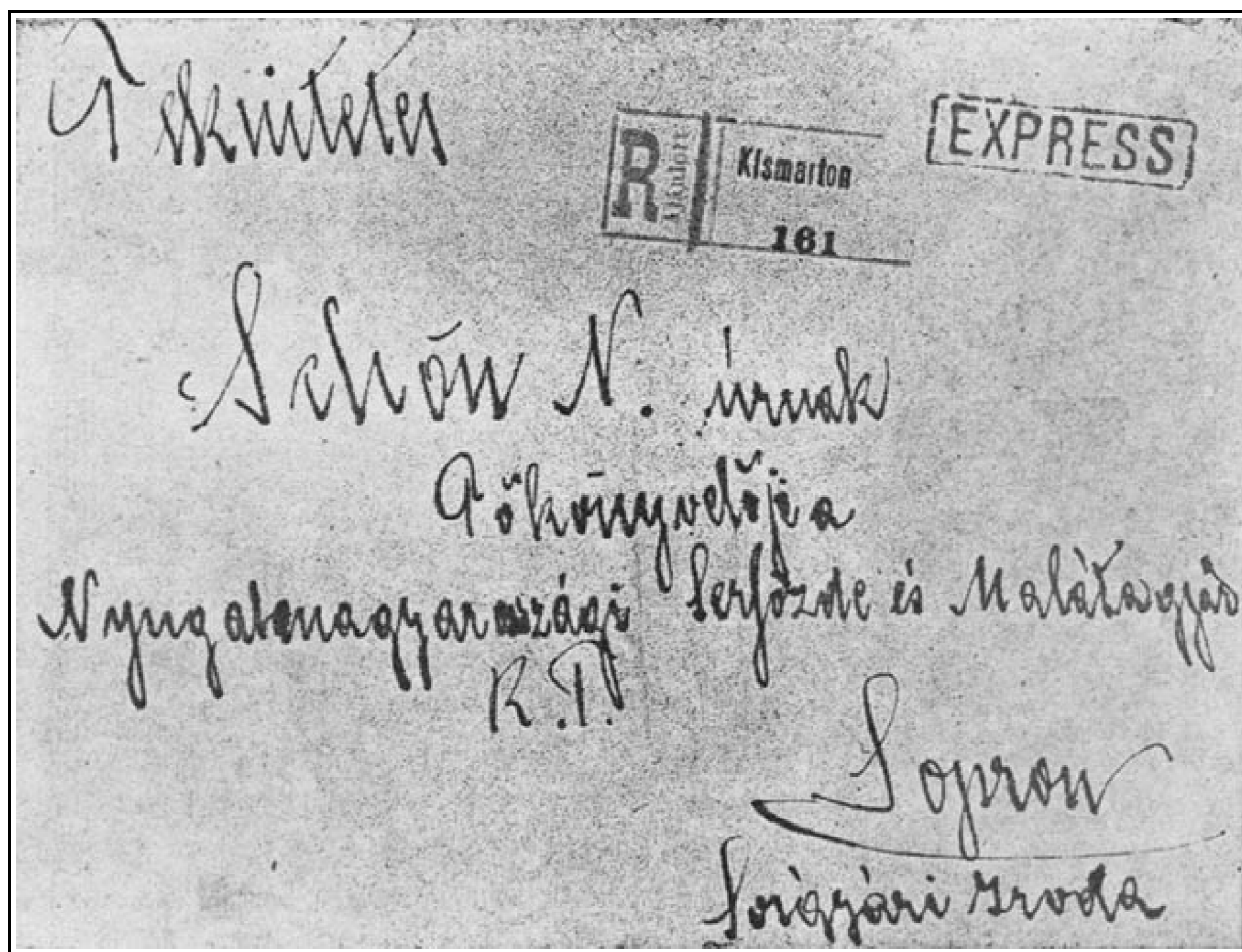 Tekintetes
R Ajánlott Kismarton
161
EXPRESS
Schön N. úrnak
Főkönyvelője a
Nyugatmagyarországi Serfőzde és Malátagyár
R.T.
Sopron
Sörgyári Iroda